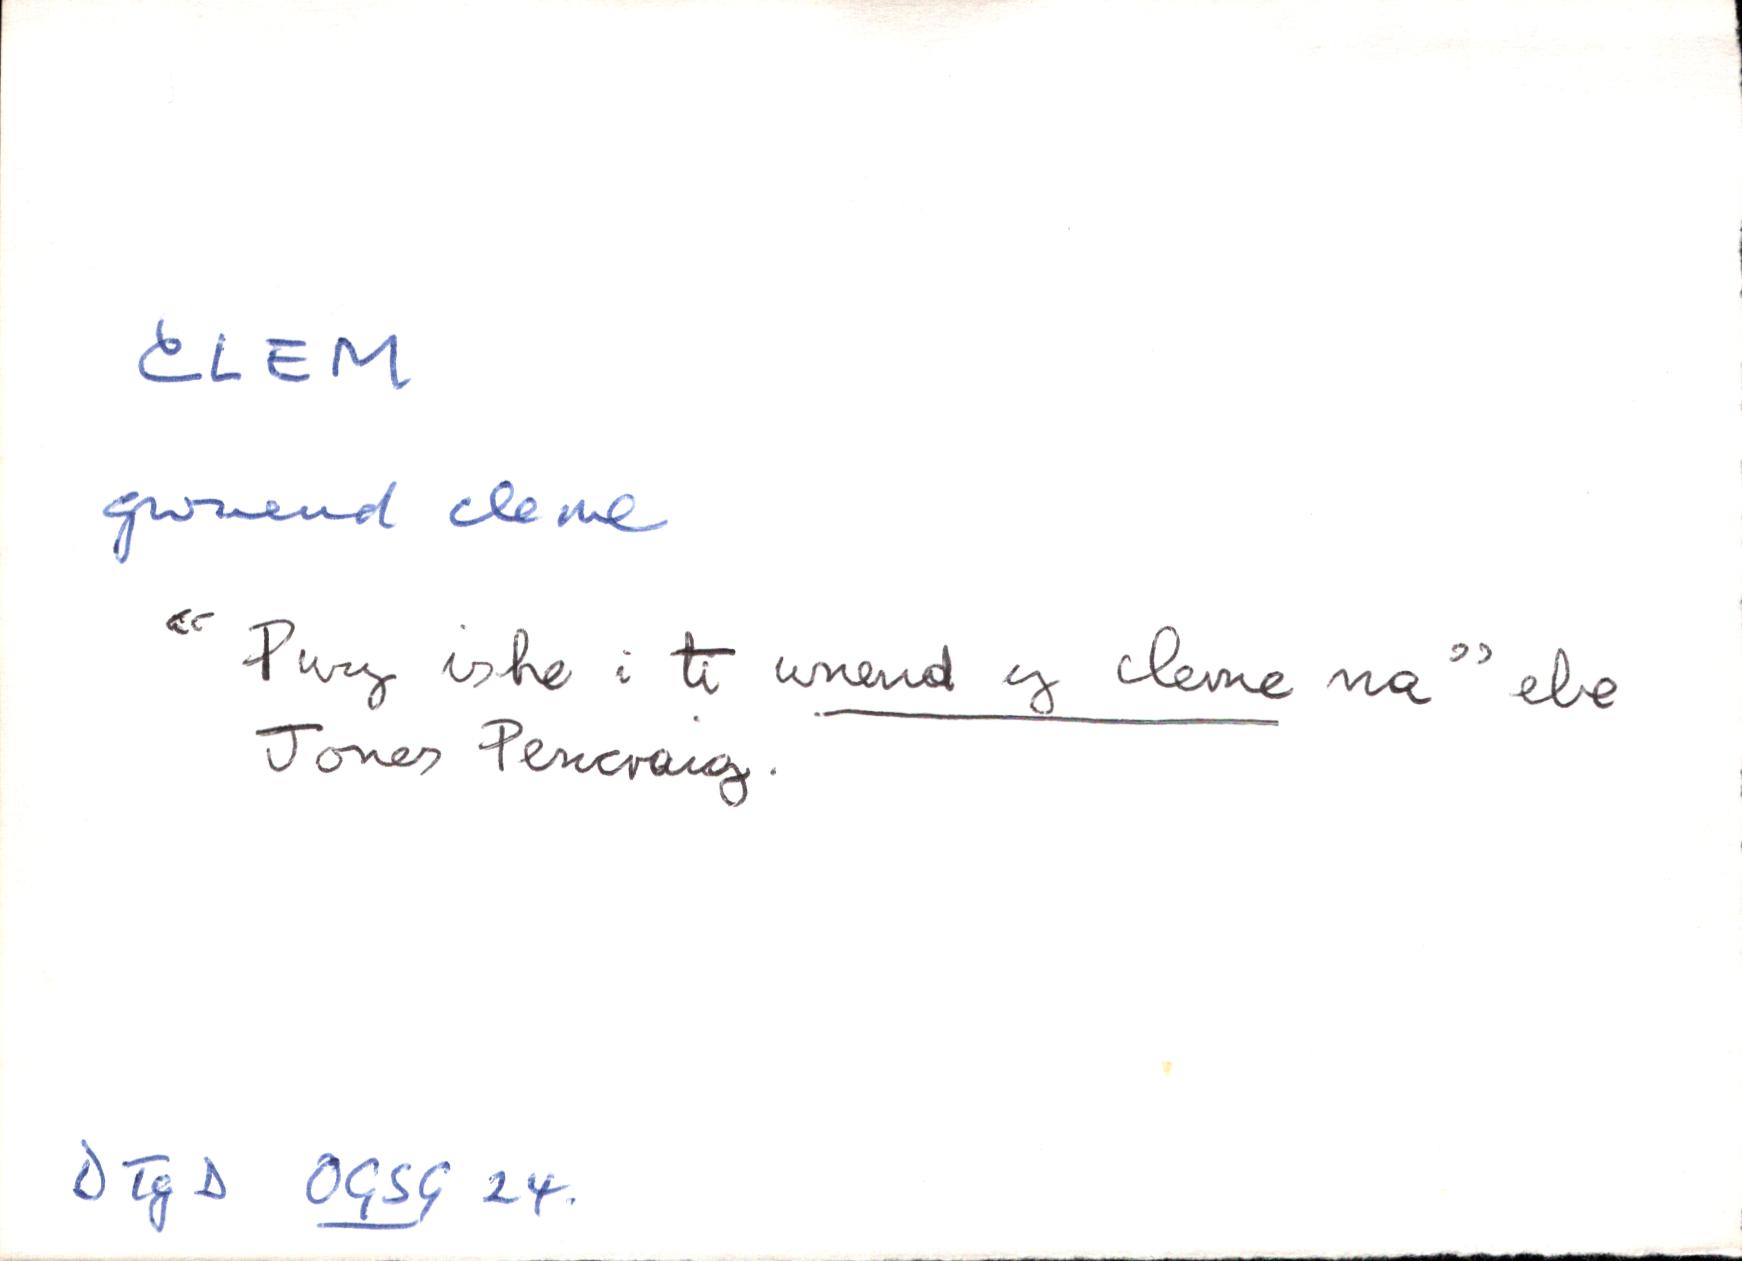 CLEM
gwneud cleme
“ Pwy ishe i ti wneud y cleme na ” ebe
Jones Pencraig.
D Tg D OGSG 24.